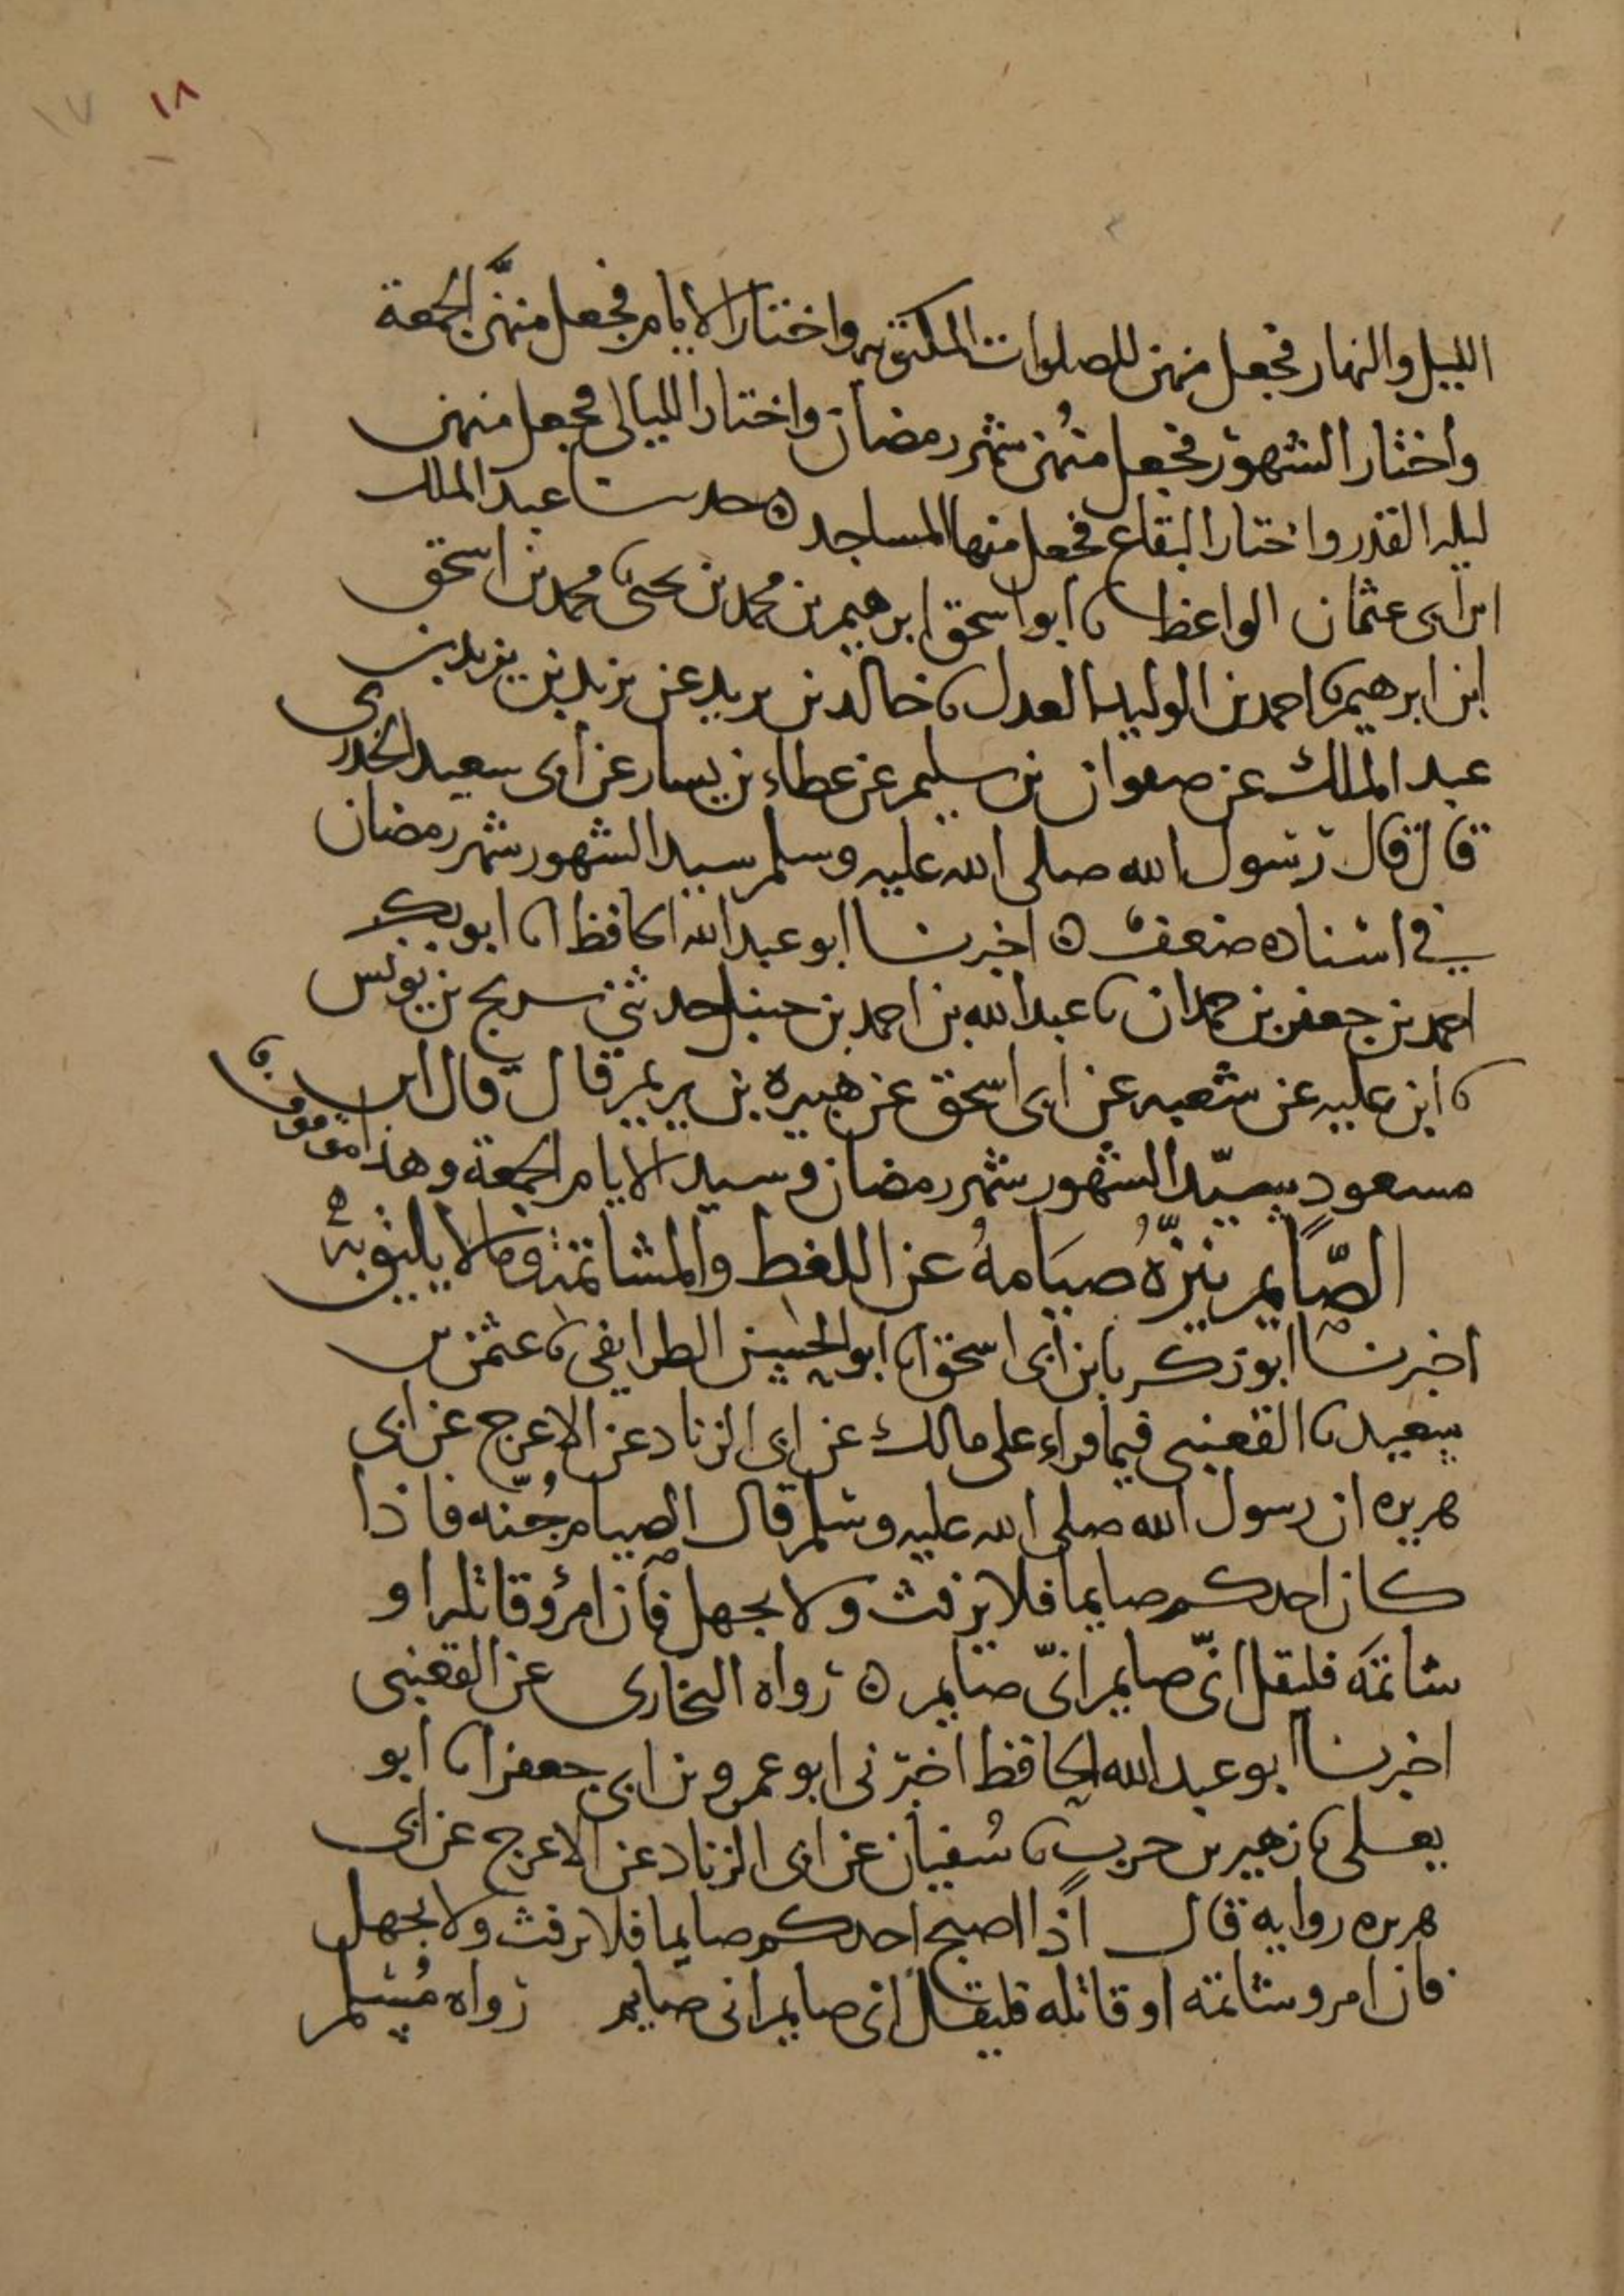 ١٨ ١٧
الليل والنهار فجعل منهن للصلوات المكتوبه واختار الايام فجعل منهنّ الجمعة
واختار الشهور فجعل منهن شهر رمضان واختار الليالى فجعل منهن
ليله القدر واختار البقاع فجعل منها المساجد ۞ حدثنا عبد الملك
ابن ابى عثمان الواعظ نا ابو اسحق ابرهيم بن محمد بن يحيى نا محمد بن اسحق
ابن ابرهيم نا احمد بن الوليد العدل نا خالد بن يزيد عن يزيد بن
عبد الملك عن صفوان بن سليم عن عطاء بن يسار عن ابى سعيد الخدرى
قال قال رسول الله صلى الله عليه وسلم سيد الشهور شهر رمضان
في اسناده ضعف ۞ اخبرنا ابو عبد الله الحافظ انا ابو بكر
احمد بن جعفر بن حمدان نا عبد الله بن احمد بن حنبل حدثنى سريج بن يونس
نا ابن عليه عن شعبه عن ابى اسحق عن هبيره بن يريم قال قال ابن
مسعود سيّد الشهور شهر رمضان وسيد الايام الجمعة وهذا موقوف
الصّايم ينزّهُ صيَامهُ عن اللغط والمشاتمة وما لا يليق به
اخبرنا ابو زكريا بن ابى اسحق انا ابو الحسين الطرايفى نا عثمن بن
سعيد نا القعنبى فيما قراء على مالك عن ابى الزناد عن الاعرج عن ابى
هريره ان رسول الله صلى الله عليه وسلم قال الصيام جُنّه فاذا
كان احدكم صايما فلا يرفث ولا يجهل فان امرؤ قاتله او
شاتمَه فليقل انىّ صايم انىّ صايم ۞ رواه البخارى عن القعنبى
اخبرنا ابو عبد الله الحافظ اخبرنى ابو عمرو بن ابى جعفر انا ابو
يعلى نا زهير بن حرب نا سُفيان عن ابى الزناد عن الاعرج عن ابى
هريره روايه قال اذا اصبح احدكم صايما فلا يرفث ولا يجهل
فان امرو شاتمه او قاتله فليقل انى صايم انى صايم رواه مُسلم